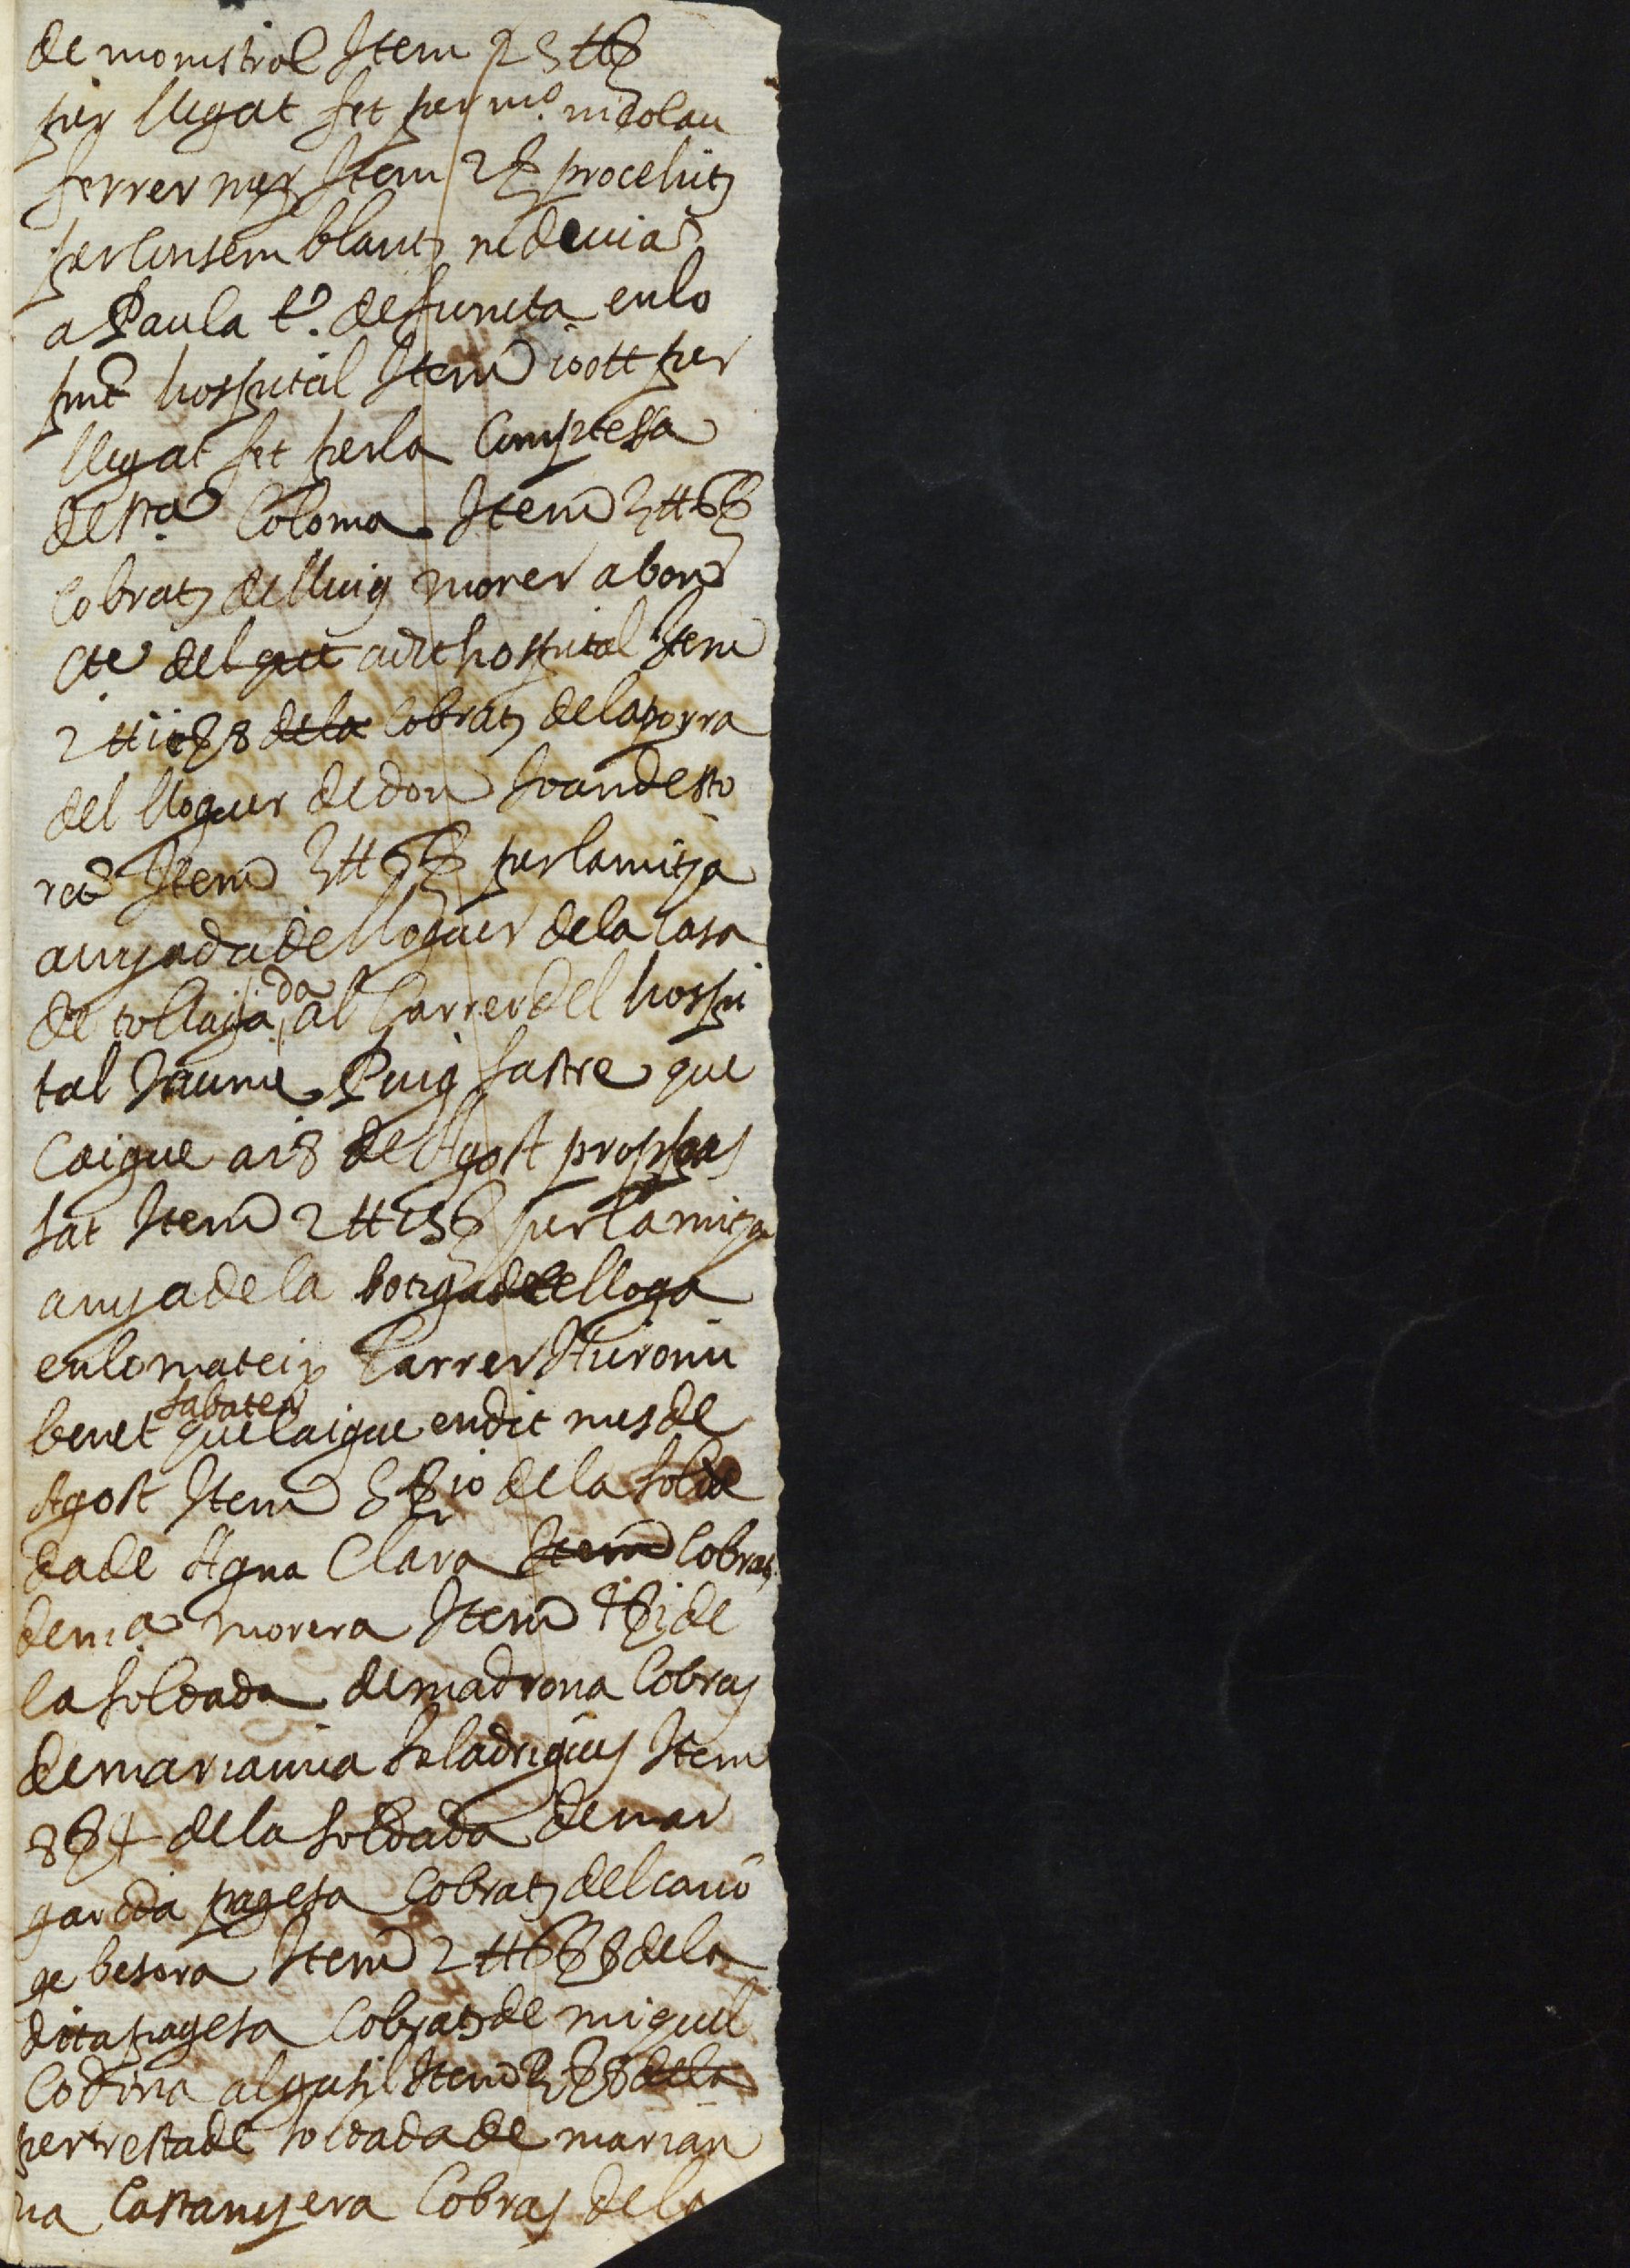 de monistrol Item 25 tt ß
per llegat fet per mº. nicolau
ferrer Item 2 ß procehits
per consemblants ne devia
a Paula tº. defuncta en lo
pnt hospital Item 100 tt per
llegat fet per la Comptessa
de sta Coloma Item 3 tt 6 ß
Cobrats de lluig morer a bon
cte del que a dit hospital Item
2 tt 11 ß 8 de la Cobrats de la porra
del lloguer de don Joan de sto
Item 3 tt 6 ß per la mitja
anyada de lloguer de la casa
al Carrer del hospi
tal Jaume Puig sastre que
Caigue a 18 de Agost prop pas
sat Item 2 tt 15 ß per la mitja
anyada de la botiga de lloga
en lo mateix Carrer Hieroni
benet sabater que caigue en dit mes de
Agost Item 5 ß 10 de la solda
da de Agna Clara Item Cobrats
de ma morera Item 4 ß 1 de
la soldada de madrona Cobras
de marianna Saladrigues Item
8 ß 4 de la soldada de mar
garida pagesa Cobrats del cano
ge besora Item 2 tt 6 ß 8 de la
dita pagesa Cobrats de miquel
Codina algutzil Item 3 ß 8 de la
per resta de soldada de marian
na Castanyera Cobras de la